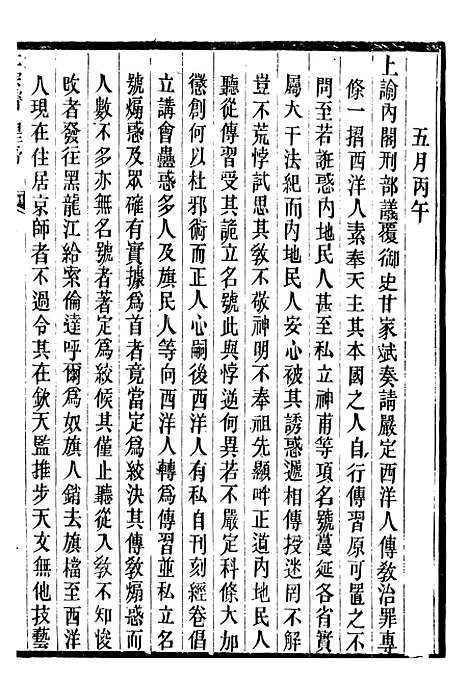 五月丙午
上諭內閣刑部議覆御史甘家斌奏請嚴定西洋人傳教治罪專
條一摺西洋人素奉天主其本國之人自行傳習原可置之不
問至若誑惑內地民人甚至私立神甫等項名號蔓延各省實
屬大干法紀而內地民人安心被其誘惑遞相傳授迷罔不解
豈不荒悖試思其教不敬神明不奉祖先顯畔正道內地民人
聽從傳習受其詭立名號此與悖逆何異若不嚴定科條大加
懲創何以杜邪術而正人心嗣後西洋人有私自刊刻經卷倡
立講會蠱惑多人及旗民人等向西洋人轉為傳習並私立名
號煽惑及眾確有實據為首者竟當定為絞決其傳教煽惑而
人數不多亦無名號者著定為絞候其僅止聽從入教不知悛
改者發往黑龍江給索倫達呼爾為奴旗人銷去旗檔至西洋
人現在住居京師者不過令其在欽天監推步天文無他技藝